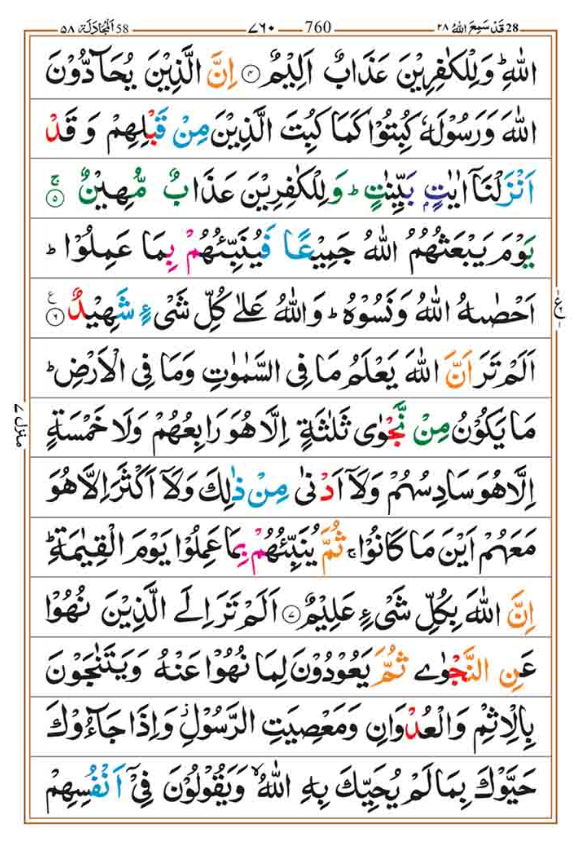 المجادلة ۵۸ 58 ۷۶۰ 760 قَدْ سَمِعَ اللّٰهُ ۲۸ 28
اللّٰهِ ؕ وَلِلْكٰفِرِيْنَ عَذَابٌ اَلِيْمٌ ۴ اِنَّ الَّذِيْنَ يُحَآدُّوْنَ
اللّٰهَ وَرَسُوْلَهٗ كُبِتُوْا كَمَا كُبِتَ الَّذِيْنَ مِنْ قَبْلِهِمْ وَ قَدْ
اَنْزَلْنَاۤ اٰيٰتٍۭ بَيِّنٰتٍ ؕ وَلِلْكٰفِرِيْنَ عَذَابٌ مُّهِيْنٌ ۚ ۵
يَوْمَ يَبْعَثُهُمُ اللّٰهُ جَمِيْعًا فَيُنَبِّئُهُمْ بِمَا عَمِلُوْا ؕ
اَحْصٰىهُ اللّٰهُ وَنَسُوْهُ ؕ وَاللّٰهُ عَلٰى كُلِّ شَىْءٍ شَهِيْدٌ ۶ ع
اَلَمْ تَرَ اَنَّ اللّٰهَ يَعْلَمُ مَا فِى السَّمٰوٰتِ وَمَا فِى الْاَرْضِ ؕ
مَا يَكُوْنُ مِنْ نَّجْوٰى ثَلٰثَةٍ اِلَّا هُوَ رَابِعُهُمْ وَلَا خَمْسَةٍ
اِلَّا هُوَ سَادِسُهُمْ وَلَاۤ اَدْنٰى مِنْ ذٰلِكَ وَلَاۤ اَكْثَرَ اِلَّا هُوَ
مَعَهُمْ اَيْنَ مَا كَانُوْا ۚ ثُمَّ يُنَبِّئُهُمْ بِمَا عَمِلُوْا يَوْمَ الْقِيٰمَةِ ؕ
اِنَّ اللّٰهَ بِكُلِّ شَىْءٍ عَلِيْمٌ ۷ اَلَمْ تَرَ اِلَى الَّذِيْنَ نُهُوْا
عَنِ النَّجْوٰى ثُمَّ يَعُوْدُوْنَ لِمَا نُهُوْا عَنْهُ وَيَتَنٰجَوْنَ
بِالْاِثْمِ وَالْعُدْوَانِ وَمَعْصِيَتِ الرَّسُوْلِ ۫ وَاِذَا جَآءُوْكَ
حَيَّوْكَ بِمَا لَمْ يُحَيِّكَ بِهِ اللّٰهُ ۙ وَيَقُوْلُوْنَ فِىْۤ اَنْفُسِهِمْ
ع
منزل ۷